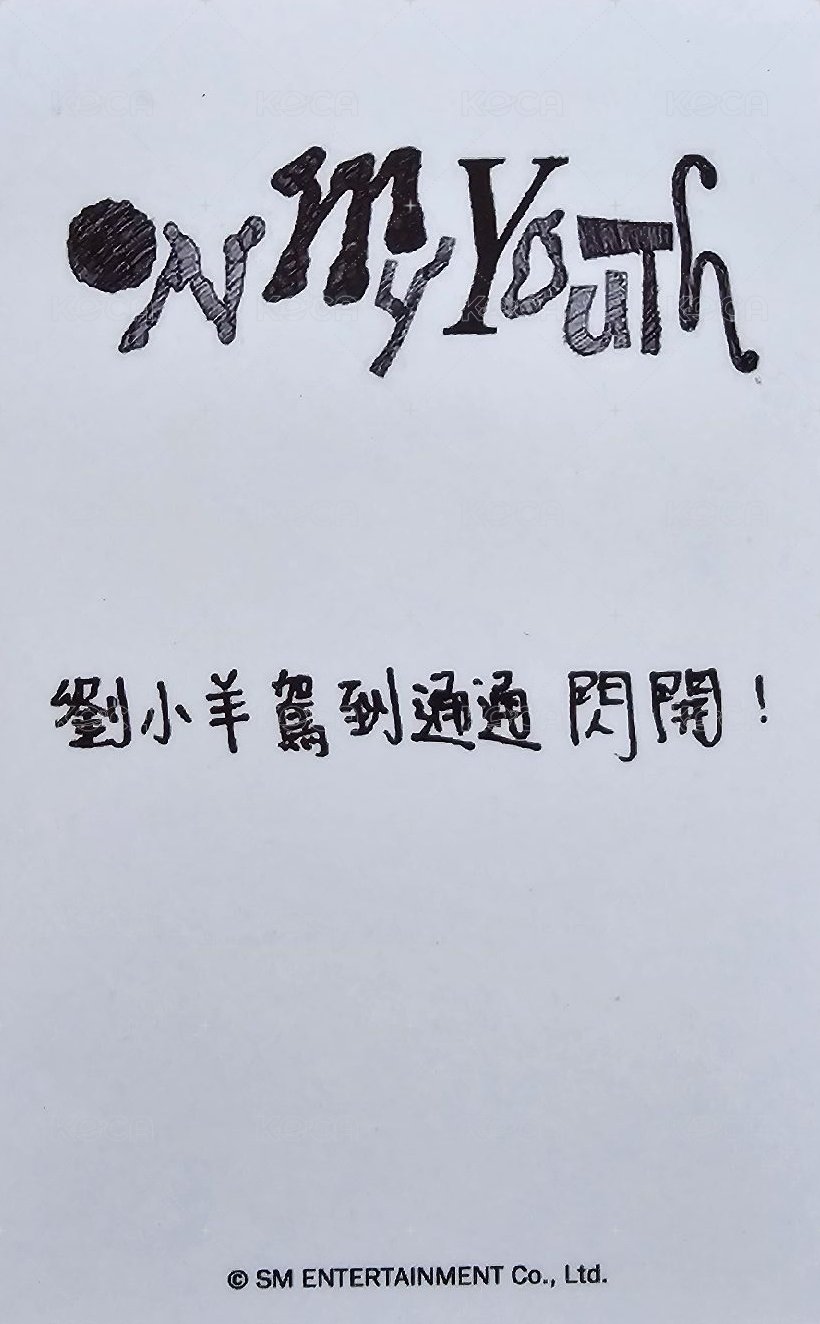 ON MY YOUTH
劉小羊駕到通通 閃開！
© SM ENTERTAINMENT Co., Ltd.
KOCA